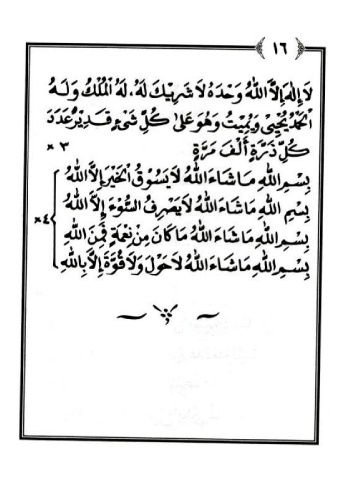 ١٦
لَا إِلٰهَ إِلَّا اللهُ وَحْدَهُ لَا شَرِيْكَ لَهُ، لَهُ الْمُلْكُ وَلَهُ
الْحَمْدُ يُحْيِىْ وَيُمِيْتُ وَهُوَ عَلىٰ كُلِّ شَىْءٍ قَدِيْرٌ عَدَدَ
كُلِّ ذَرَّةٍ أَلْفَ مَرَّةٍ ٣×
بِسْمِ اللهِ مَا شَاءَ اللهُ لَا يَسُوْقُ الْخَيْرَ إِلَّا اللهُ
بِسْمِ اللهِ مَا شَاءَ اللهُ لَا يَصْرِفُ السُّوْءَ إِلَّا اللهُ
بِسْمِ اللهِ مَا شَاءَ اللهُ مَا كَانَ مِنْ نِعْمَةٍ فَمِنَ اللهِ
بِسْمِ اللهِ مَا شَاءَ اللهُ لَا حَوْلَ وَلَا قُوَّةَ إِلَّا بِاللهِ
٤×